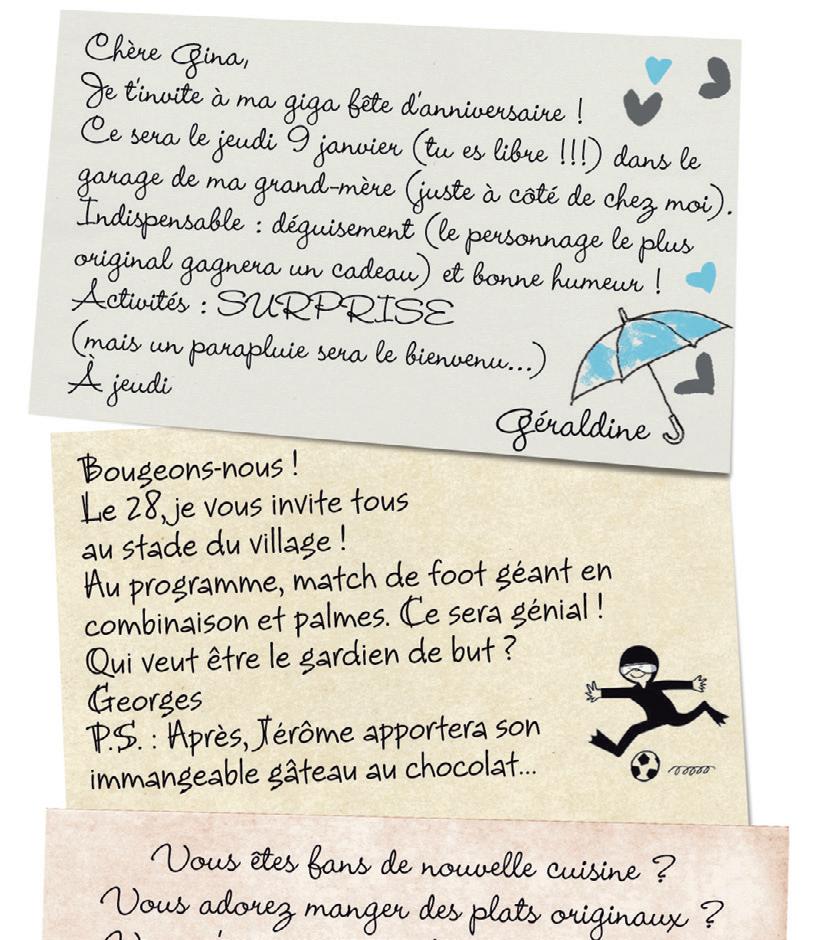 Chère Gina,
Je t'invite à ma giga fête d'anniversaire !
Ce sera le jeudi 9 janvier (tu es libre !!!) dans le
garage de ma grand-mère (juste à côté de chez moi).
Indispensable : déguisement (le personnage le plus
original gagnera un cadeau) et bonne humeur !
Activités : SURPRISE
(mais un parapluie sera le bienvenu...)
À jeudi
Géraldine
Bougeons-nous !
Le 28, je vous invite tous
au stade du village !
Au programme, match de foot géant en
combinaison et palmes. Ce sera génial !
Qui veut être le gardien de but ?
Georges
P.S. : Après, Jérôme apportera son
immangeable gâteau au chocolat...
Vous êtes fans de nouvelle cuisine ?
Vous adorez manger des plats originaux ?